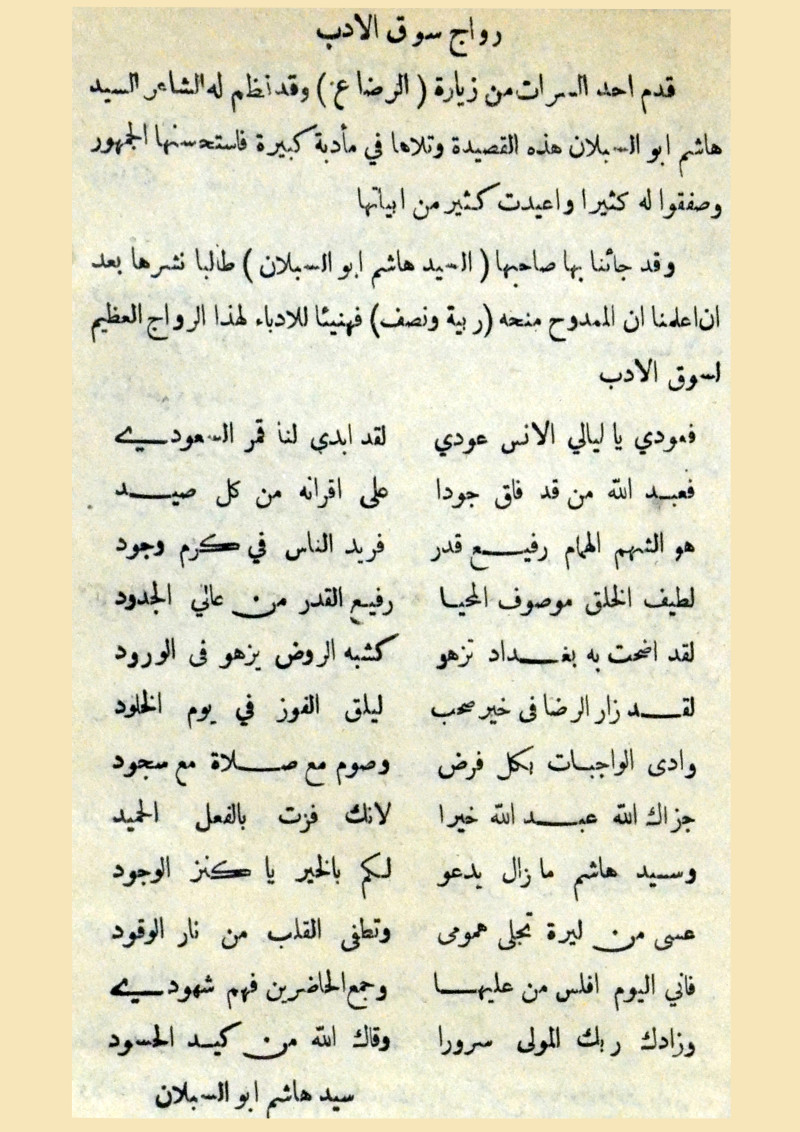 رواج سوق الادب
قدم احد السرات من زيارة ( الرضا ع ) وقد نظم له الشاعر السيد
هاشم ابو السبلان هذه القصيدة وتلاها في مأدبة كبيرة فاستحسنها الجمهور
وصفقوا له كثيرا واعيدت كثير من ابياتها
وقد جائنا بها صاحبها ( السيد هاشم ابو السبلان ) طالبا نشرها بعد
ان اعلمنا ان الممدوح منحه (ربية ونصف) فهنيئا للادباء لهذا الرواج العظيم
لسوق الادب
فعودي يا ليالي الانس عودي لقد ابدى لنا قمر السعودي
فعبد الله من قد فاق جودا على اقرانه من كل صيد
هو الشهم الهمام رفيع قدر فريد الناس في كرم وجود
لطيف الخلق موصوف المحيا رفيع القدر من عالي الجدود
لقد اضحت به بغداد تزهو كشبه الروض يزهو فى الورود
لقد زار الرضا فى خير صحب ليلق الفوز في يوم الخلود
وادى الواجبات بكل فرض وصوم مع صلاة مع سجود
جزاك الله عبد الله خيرا لانك فزت بالفعل الحميد
وسيد هاشم ما زال يدعو لكم بالخير يا كنز الوجود
عسى من ليرة تجلى همومى وتطفى القلب من نار الوقود
فاني اليوم افلس من عليها وجمع الحاضرين فهم شهودي
وزادك ربك المولى سرورا وقاك الله من كيد الحسود
سيد هاشم ابو السبلان